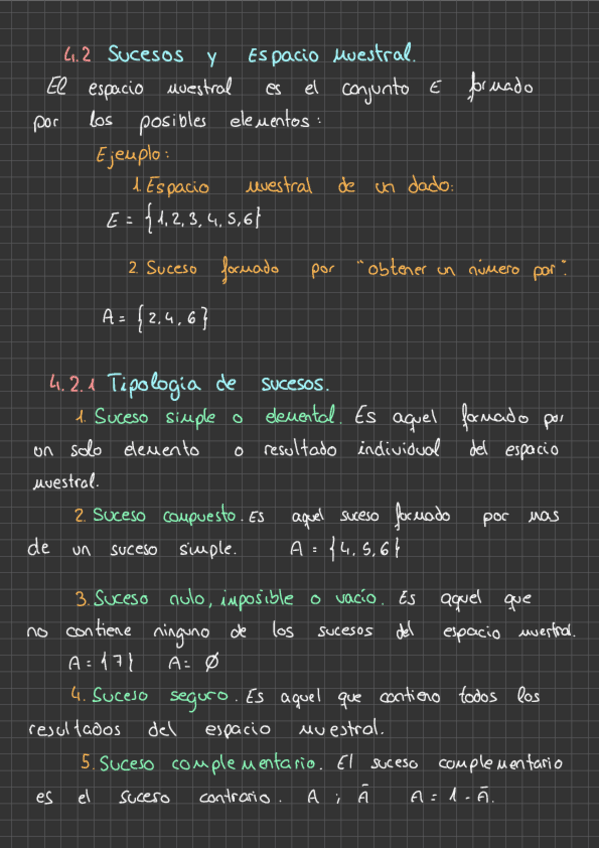 4.2 Sucesos y Espacio muestral.
El espacio muestral es el conjunto E formado
por los posibles elementos:
Ejemplo:
1. Espacio muestral de un dado:
E = {1, 2, 3, 4, 5, 6}
2. Suceso formado por "obtener un número par":
A = {2, 4, 6}
4.2.1 Tipologia de sucesos.
1. Suceso simple o elemental. Es aquel formado por
un solo elemento o resultado individual del espacio
muestral.
2. Suceso compuesto. Es aquel suceso formado por mas
de un suceso simple. A = {4, 5, 6}
3. Suceso nulo, imposible o vacío. Es aquel que
no contiene ninguno de los sucesos del espacio muestral.
A = {7} A = Ø
4. Suceso seguro. Es aquel que contiene todos los
resultados del espacio muestral.
5. Suceso complementario. El suceso complementario
es el suceso contrario. A ; Ā A = 1 - Ā.